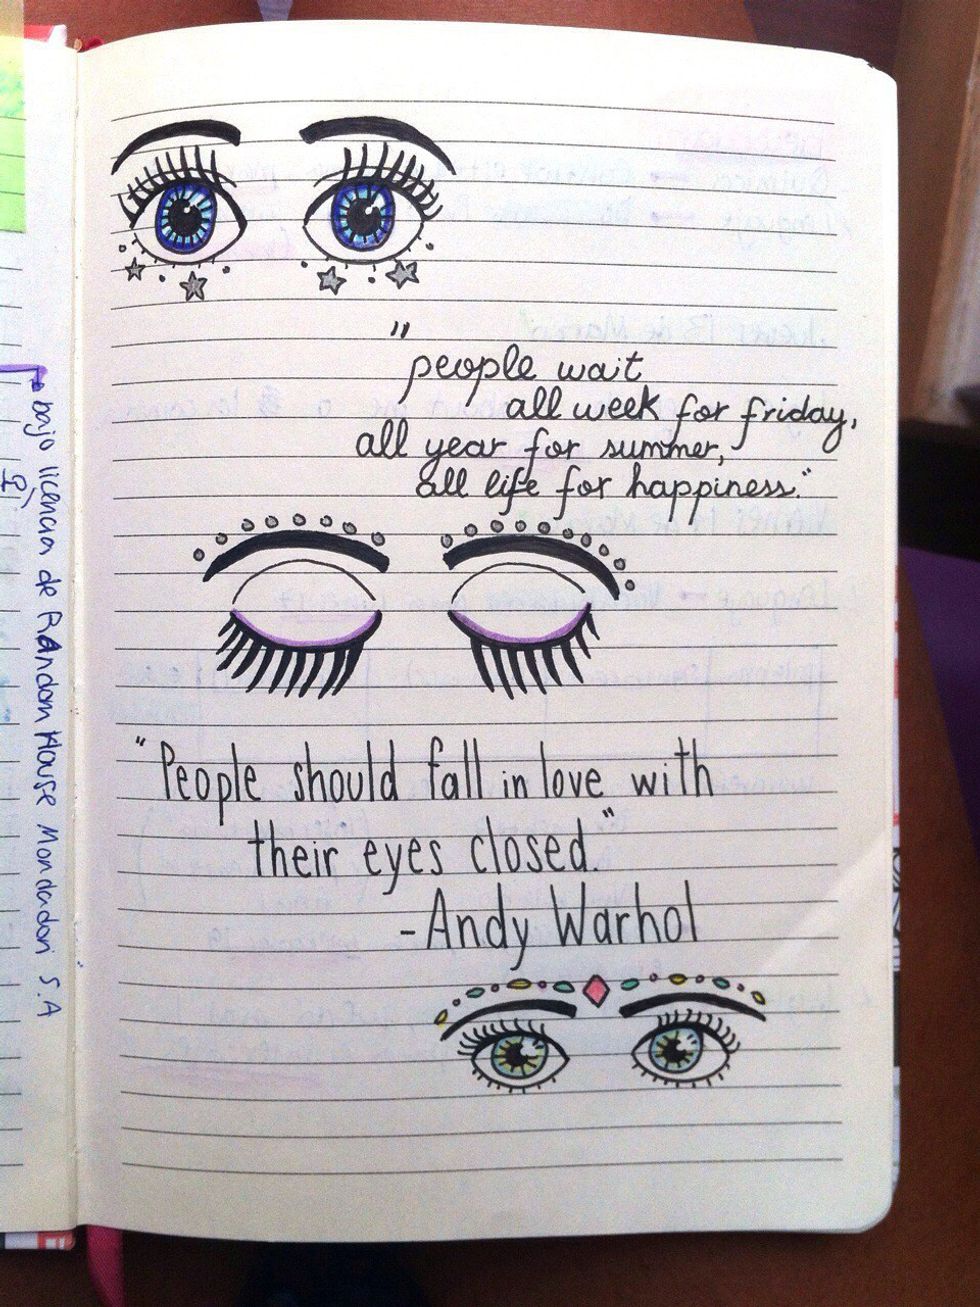 "
people wait
all week for friday,
all year for summer,
all life for happiness."
"People should fall in love with
their eyes closed."
-Andy Warhol
bajo licencia de Random House Mondadori S.A